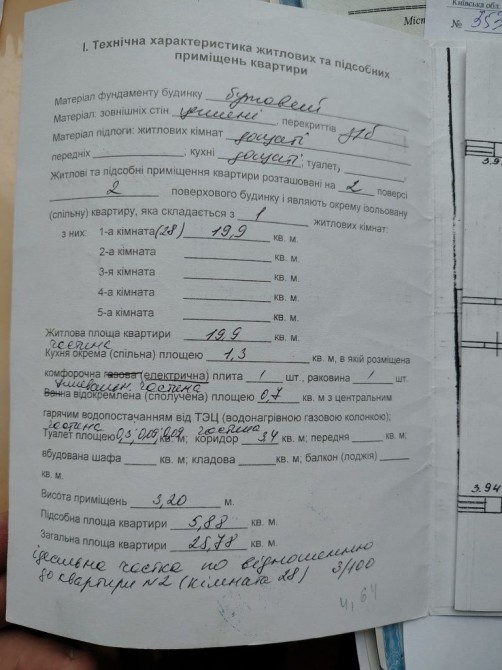 Київська обл
Міст
№ 353
І. Технічна характеристика житлових та підсобних
приміщень квартири
Матеріал фундаменту будинку бутовий
Матеріал: зовнішніх стін цегляні, перекриттів з/б
Матеріал підлоги: житлових кімнат дощаті
передніх , кухні дощаті; туалет,
Житлові та підсобні приміщення квартири розташовані на 2 поверсі
2 поверхового будинку і являють окрему ізольовану
(спільну) квартиру, яка складається з 1 житлових кімнат:
з них: 1-а кімната (28) 19,9 кв. м.
2-а кімната кв. м.
3-я кімната кв. м.
4-а кімната кв. м.
5-а кімната кв. м.
Житлова площа квартири 19.9 кв. м.
частина
Кухня окрема (спільна) площею 1,3 кв. м, в якій розміщена
комфорочна газова (електрична) плита 1 шт., раковина 1 шт.
умивальн. частина
Ванна відокремлена (сполучена) площею 0,7 кв. м з центральним
гарячим водопостачанням від ТЕЦ (водонагрівною газовою колонкою);
частина частина
Туалет площею 0,3; 0,09; 0,09 кв. м; коридор 3,4 кв. м; передня кв. м;
вбудована шафа кв. м; кладова кв. м; балкон (лоджія)
кв. м.
Висота приміщень 3,20 м.
Підсобна площа квартири 5,88 кв. м.
Загальна площа квартири 25,78 кв. м.
ідеальна частка по відношенню
до квартири №2 (кімната 28) 3/100
4,64
3.94